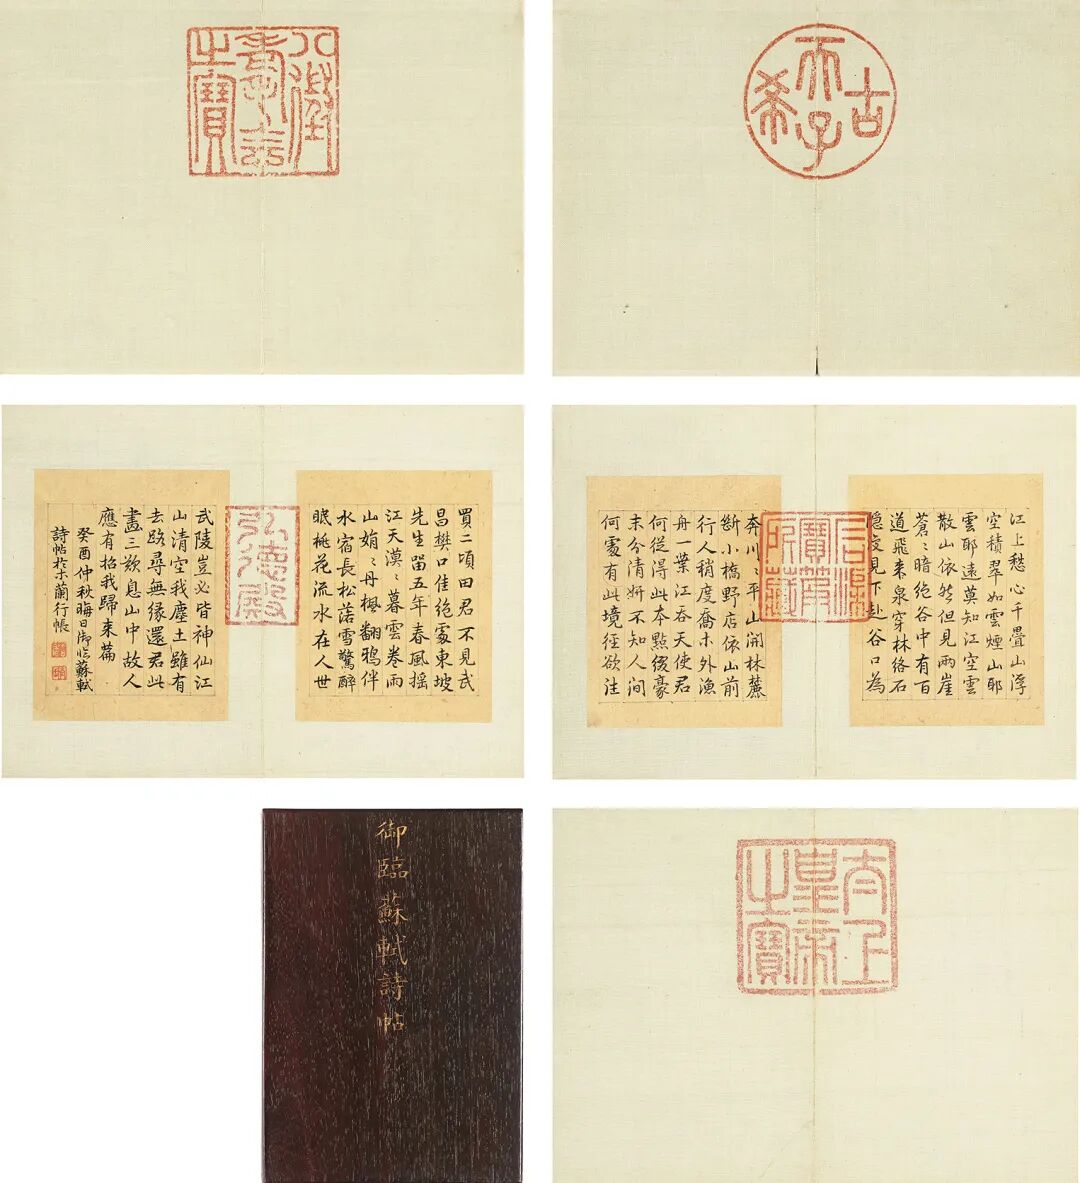 古希天子
八徵耄念之寶
江上愁心千疊山浮
空積翠如雲煙山耶
雲耶遠莫知江空雲
散山依然但見兩崖
蒼〻暗絕谷中有百
道飛来泉穿林絡石
隱復見下赴谷口為
石渠寶笈所藏
奔川〻平山開林麓
斷小橋野店依山前
行人稍度喬木外漁
舟一葉江吞天使君
何從淂此本點綴豪
末分清妍不知人间
何處有此境徑欲往
買二頃田君不見武
昌樊口佳絕處東坡
先生留五年春風摇
江天漠〻暮雲卷雨
山娟〻丹楓翻鴉伴
水宿長松落雪驚醉
眠桃花流水在人世
弘德殿
武陵豈必皆神仙江
山清空我塵土雖有
去路尋無緣還君此
畫三歎息山中故人
應有招我歸来篇
癸酉仲秋晦日御临蘇軾
詩帖於木蘭行帳
太上皇帝之寶
御臨蘇軾詩帖